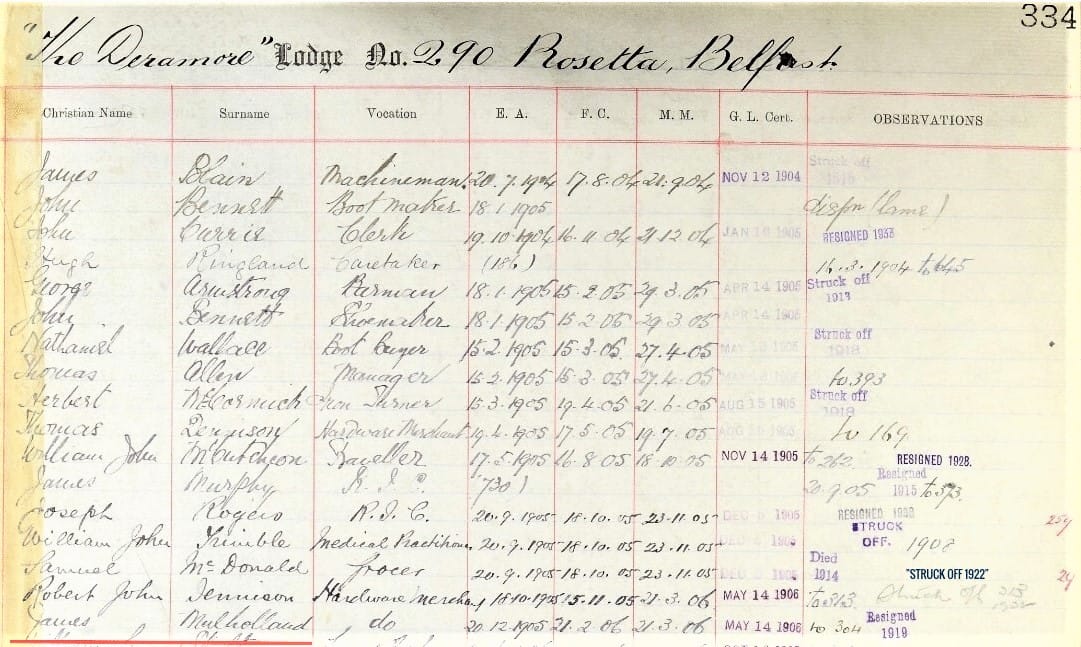 334
"The Deramore" Lodge No. 290 Rosetta, Belfast.
Christian Name Surname Vocation E. A. F. C. M. M. G. L. Cert. OBSERVATIONS
Struck off
James Blain Machineman. 20.7.1904 17.8.04 21.9.04 NOV 12 1904
John Bennett Boot maker 18.1.1905
John Currie Clerk 19.10.1904 16.11.04 21.12.04 JAN 1905 RESIGNED 1933
Hugh Ringland Caretaker (186) 16.3.1904 to 645
George Armstrong Barman 18.1.1905 15.2.05 29.3.05 APR 14 1905 Struck off
1913
John Bennett Shoemaker 18.1.1905 15.2.05 29.3.05 APR 14 1905
Nathaniel Wallace Boot buyer 15.2.1905 15.3.05 27.4.05 MAY 1905 Struck off
1918
Thomas Allen Manager 15.2.1905 15.3.05 27.4.05 MAY 1905 to 393
Herbert McCormick Iron Turner 15.3.1905 19.4.05 21.6.05 AUG 15 1905 Struck off
1918
Thomas Dennison Hardware Merchant 19.4.1905 17.5.05 19.7.05 AUG 1905 to 169
William John Traveller 17.5.1905 16.8.05 18.10.05 NOV 14 1905 to 262 RESIGNED 1928.
James Murphy R. I. C. 20.9.05 Resigned
1915 to 373
Joseph Rogers R.I.C. 20.9.1905 18.10.05 23.11.05 DEC 1905 RESIGNED
William John Trimble Medical Practitioner 20.9.1905 18.10.05 23.11.05 DEC 1905 STRUCK
OFF. 1908
Samuel McDonald Grocer 20.9.1905 18.10.05 23.11.05 DEC 1905 Died
1914 "STRUCK OFF 1922"
Robert John Dennison Hardware Merchant 18.10.1905 15.11.05 21.3.06 MAY 14 1906 to 313 Struck off
James Mulholland do 20.12.1905 21.2.06 21.3.06 MAY 14 1906 to 304 Resigned
1919